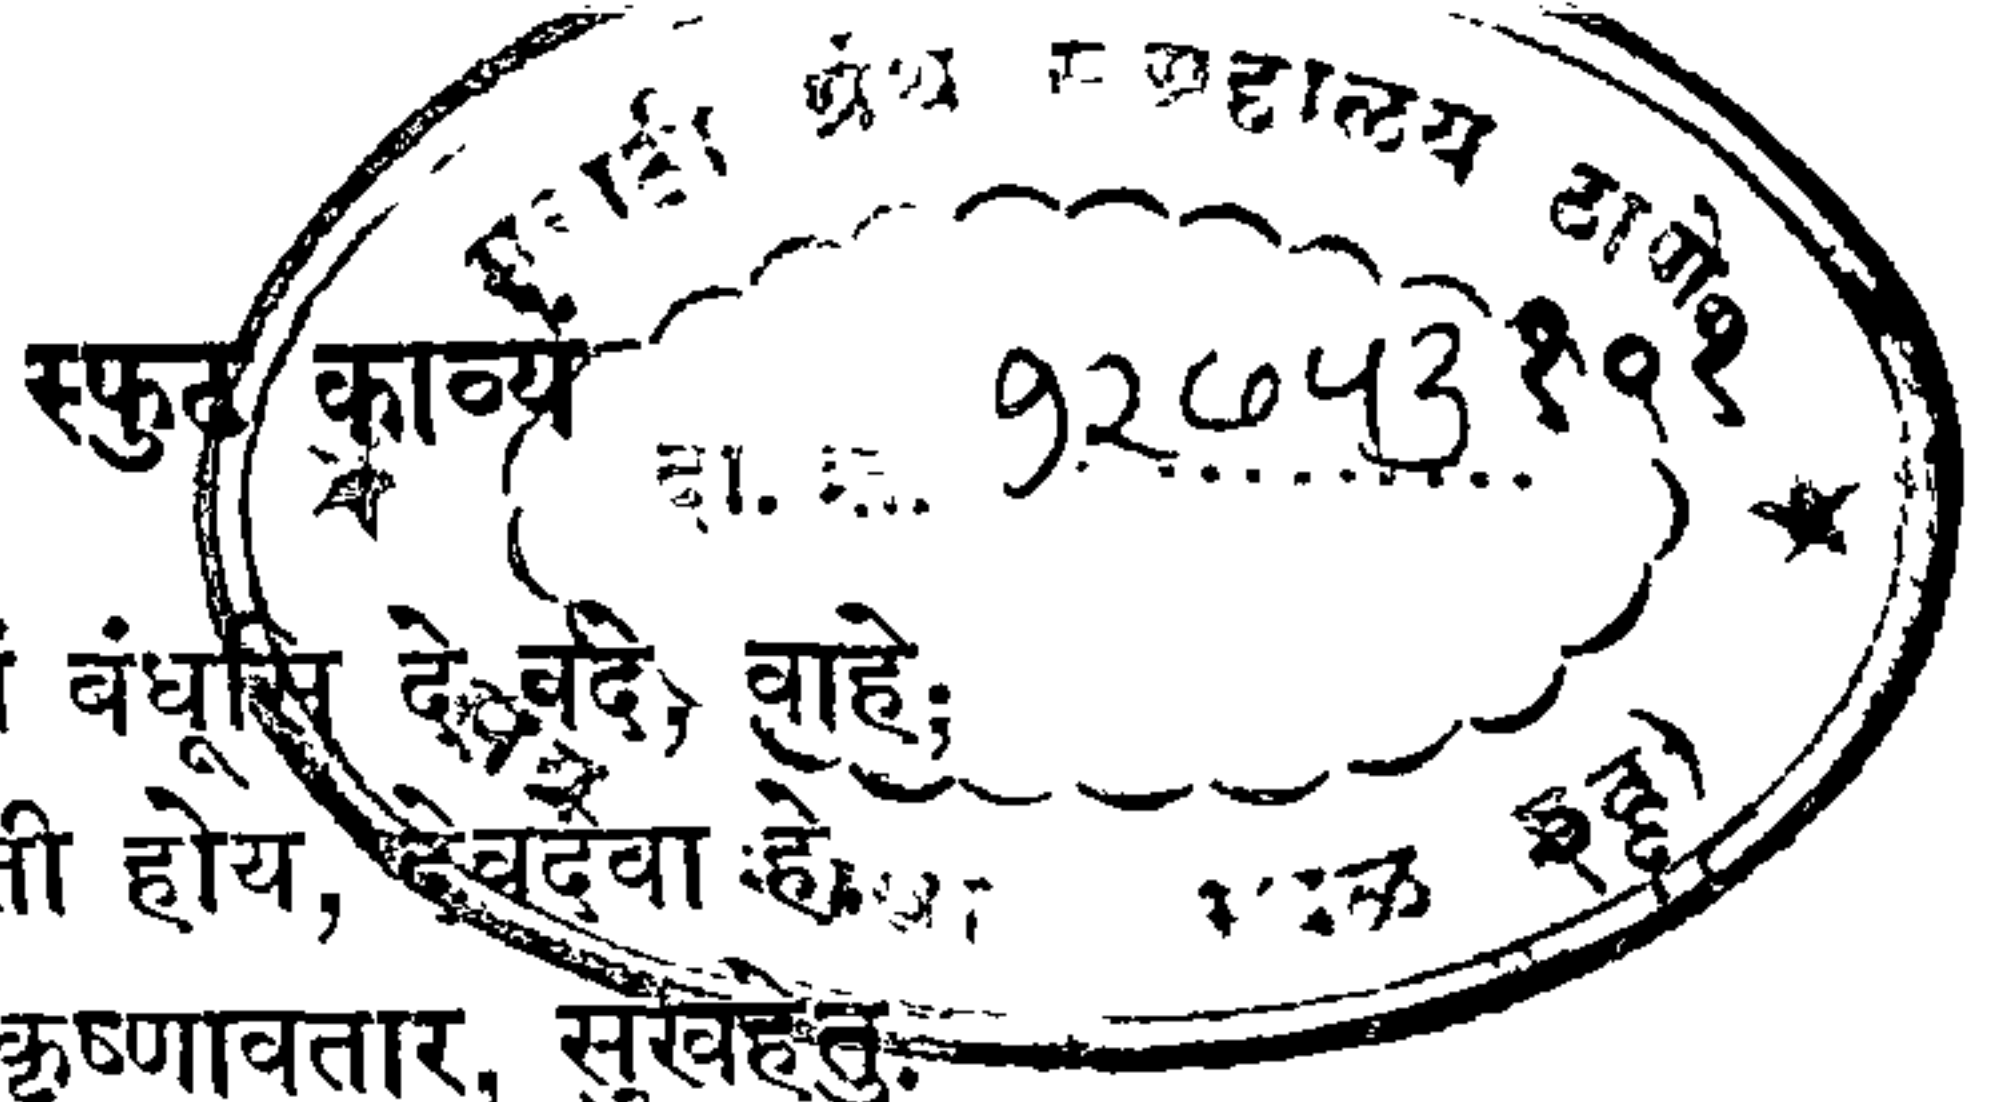 मराठी ग्रंथ संग्रहालय ठाणे
स्फुट काव्यें १०१
दा. क्र. १२७५३
बंधूसि दे वदे, वाहे;
ती होय, देवदेवा हे.
कृष्णावतार, सुखहेतु.